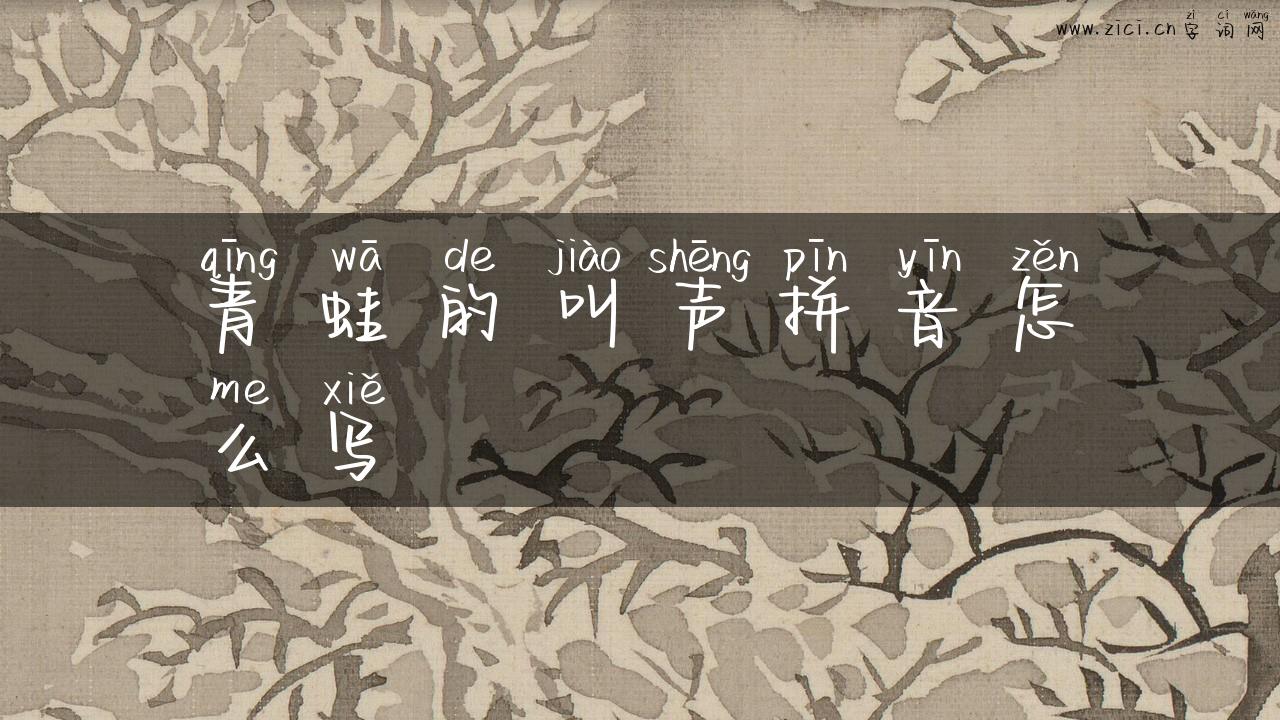 zì cí wǎng
www.zici.cn 字 词 网
qīng wā de jiào shēng pīn yīn zěn
青 蛙 的 叫 声 拼 音 怎
me xiě
么 写